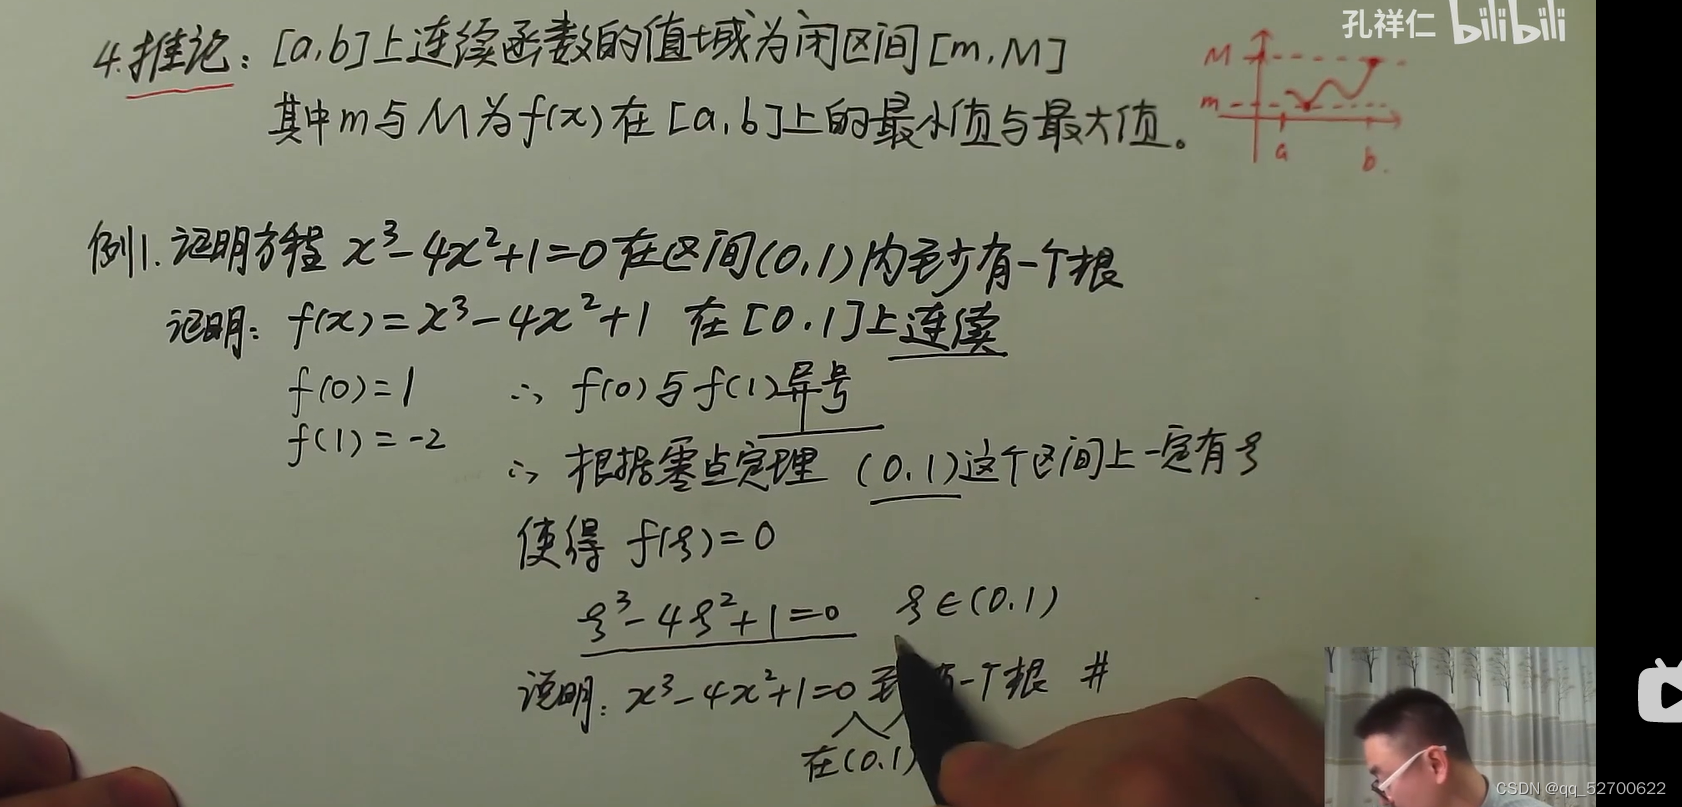 孔祥仁 bilibili
4.推论：[a,b]上连续函数的值域为闭区间[m,M]
其中m与M为f(x)在[a,b]上的最小值与最大值。
M
m
a
b
例1.证明方程 x³-4x²+1=0 在区间(0,1)内至少有一个根
证明: f(x)=x³-4x²+1 在[0.1]上连续
f(0)=1 ∴ f(0)与f(1)异号
f(1)=-2
∴ 根据零点定理 (0.1)这个区间上一定有ξ
使得 f(ξ)=0
ξ³-4ξ²+1=0 ξ∈(0.1)
说明: x³-4x²+1=0 一个根 #
在(0.1)
CSDN @qq_52700622